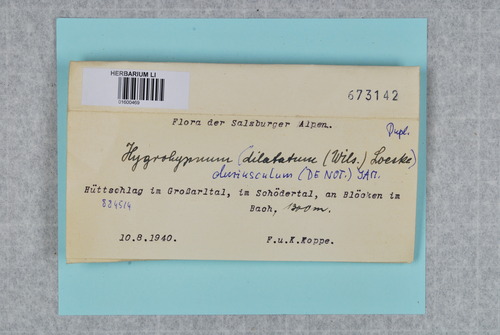 HERBARIUM LI
01600469
673142
Flora der Salzburger Alpen.
Dupl.
Hygrohypnum (dilatatum (Wils.) Loeske)
duriusculum (DE NOT.) JAM.
Hüttschlag im Großarltal, im Schödertal, an Blöcken im
884514
Bach, 1300m.
10.8.1940.
F.u.K.Koppe.